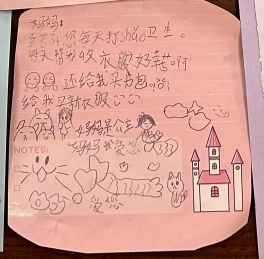 妈妈:
您每天打shǎo卫生。
每天替我收衣服好辛苦啊
还给我买书包啦
给我卫新衣服
妈妈是公主
妈妈我爱您
NOTES:
爱您